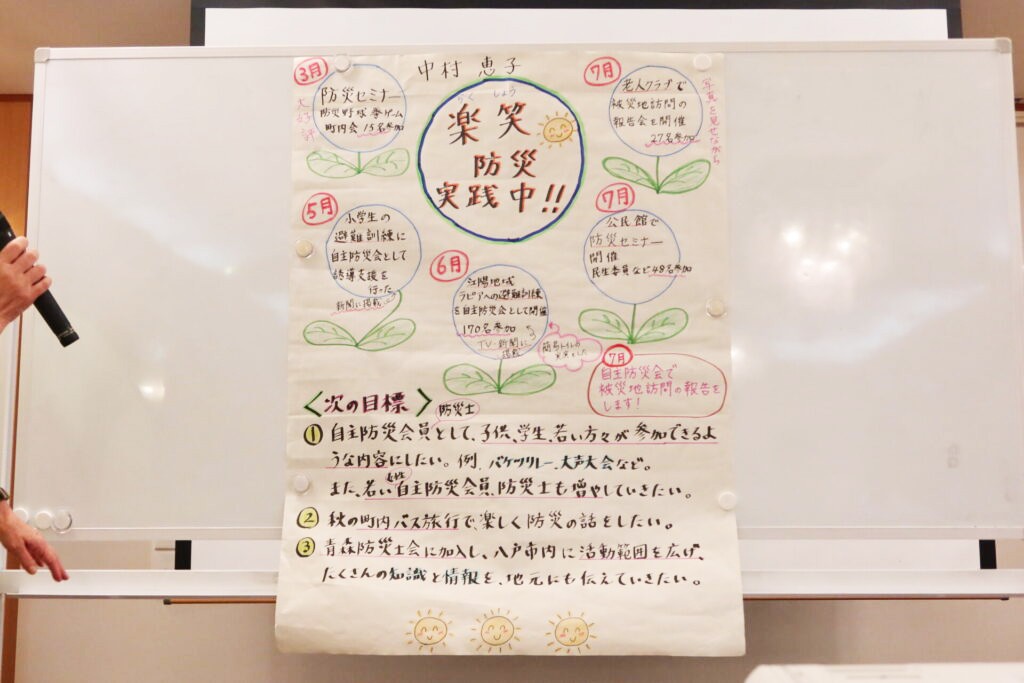 中村 恵子
らくしょう
楽笑
防災
実践中!!
3月
防災セミナー
防災野球拳ゲーム
町内会 15名参加
大好評
5月
小学生の
避難訓練に
自主防災会として
誘導支援を
行った
新聞に掲載
6月
江陽地域
ラピアへの避難訓練
を自主防災会として開催
170名参加
TV・新聞に
掲載
簡易トイレの
7月
老人クラブで
被災地訪問の
報告会を開催
27名参加
写真を見せながら
7月
公民館で
防災セミナー
開催
民生委員など48名参加
7月
自主防災会で
被災地訪問の報告を
します!
<次の目標>
防災士
① 自主防災会員として、子供、学生、若い方々が参加できるよ
うな内容にしたい。例、バケツリレー、大声大会など。
女性
また、若い自主防災会員、防災士も増やしていきたい。
② 秋の町内バス旅行で、楽しく防災の話をしたい。
③ 青森防災士会に加入し、八戸市内に活動範囲を広げ、
たくさんの知識と情報を、地元にも伝えていきたい。